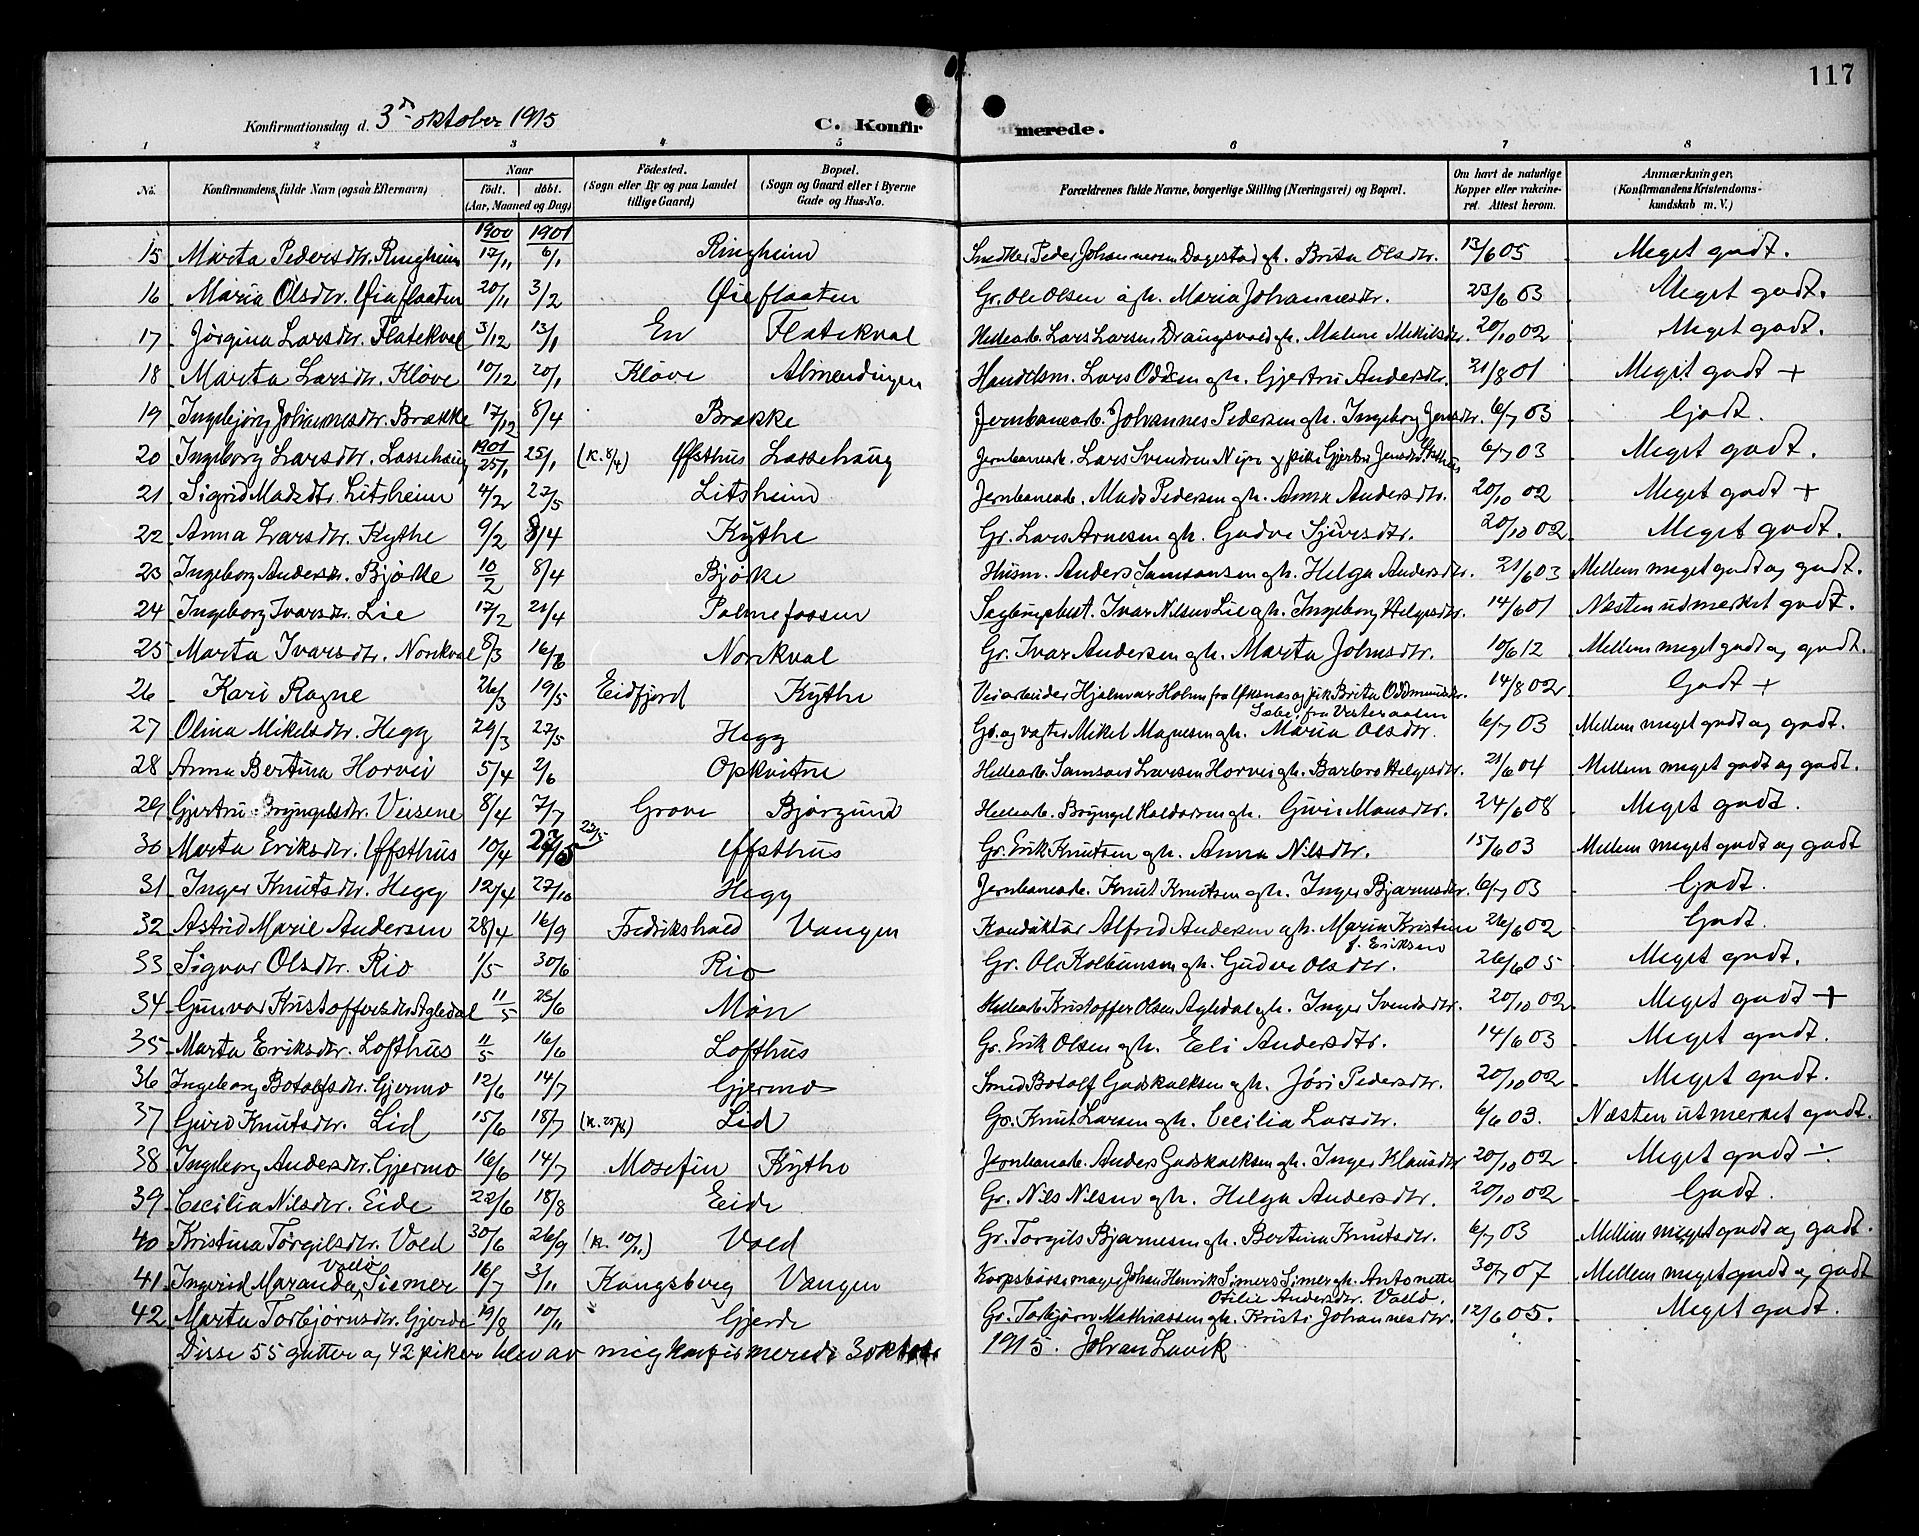 117
Konfirmationsdag d. 3dn oktober 1915 C. Konfirmerede.
1 2 3 4 5 6 7 8
No. Konfirmandens fulde Navn (ogsaa Efternavn) Naar födt. döbt. (Aar, Maaned og Dag) Födested. (Sogn eller By og paa Landet tillige Gaard) Bopæl. (Sogn og Gaard eller i Byerne Gade og Hus-No. Forældrenes fulde Navne, borgerlige Stilling (Næringsvei) og Bopæl. Om havt de naturlige Kopper eller vakcineret. Attest herom. Anmærkninger. (Konfirmandens Kristendomskundskab m. V.)
1900 1901
15 Marta Pedersdtr. Ringheim 17/11 6/1 Ringheim Snedker Peder Johannesen Dagestad gh. Brita Olsdtr. 13/6 05 Meget godt.
16 Maria Olsdtr. Øieflaaten 20/11 3/2 Øieflaaten Gr. Ole Olsen agh. Maria Johannesdtr. 23/6 03 Meget godt.
17 Jørgina Larsdtr. Flatekval 3/12 13/1 En Flatekval Hellearb. Lars Larsen Draugsvold gh. Malene Mikilsdtr. 20/10 02 Meget godt.
18 Marta Larsdtr. Kløve 10/12 20/1 Kløve Almendingen Handelsm. Lars Oddsen gh. Gjertru Andersdtr. 21/8 01 Meget godt +
19 Ingebjørg Johannesdtr. Brække 17/12 8/4 Brække Jernbanearb. Johannes Pedersen gh. Ingeborg Jensdtr. 6/7 03 Godt.
20 Ingeborg Larsdtr. Lassehaug 1901 25/1 25/1 (k. 8/4) Øfsthus Lassehaug Jernbanearb. Lars Svendsen Nipe og pike Gjertru Jensdtr. Øfsthus 6/7 03 Meget godt.
21 Sigrid Madsdtr. Litsheim 4/2 27/5 Litsheim Jernbanearb. Mads Pedersen gh. Anna Andersdtr. 20/10 02 Meget godt +
22 Anna Larsdtr. Kythe 9/2 8/4 Kythe Gr. Lars Arnesen gh. Gudve Sjursdtr. 20/10 02 Meget godt.
23 Ingeborg Andersdr. Bjørke 10/2 8/4 Bjørke Husm. Anders Samsonsen gh. Helga Andersdtr. 21/6 03 Mellem meget godt og godt.
24 Ingeborg Ivarsdtr. Lie 17/2 21/4 Palmefossen Sagbrugsbest. Ivar Nilsen Lie gh. Ingeborg Helgesdtr. 14/6 01 Næsten udmerket godt.
25 Marta Ivarsdtr. Norekval 8/3 16/6 Norekval Gr. Ivar Andersen gh. Marta Johnsdtr. 10/6 12 Mellem meget godt og godt.
26 Kari Ragne 26/3 19/5 Eidfjord Kythe Veiarbeider Hjalmar Holm fra Øksnes og pik Brita Oddmundsdtr. Sæbe, fra Vesteraalen 14/8 02 Godt +
27 Olina Mikelsdtr. Hegg 29/3 27/5 Hegg Gb. og vogter Mikel Magnesen gh. Maria Olsdtr. 6/7 03 Mellem meget godt og godt.
28 Anna Bertina Horvei 5/4 2/6 Opkvitne Hellearb. Samson Larsen Horvei gh. Barbro Helgesdtr. 21/6 04 Mellem meget godt og godt.
29 Gjertru Bryngelsdtr. Veisene 8/4 7/7 Grove Bjørgum Hellearb. Bryngel Haldorsen gh. Guri Monsdtr. 24/6 08 Meget godt.
30 Marta Eriksdtr. Øfsthus 10/4 27/5 23/5 Øfsthus Gr. Erik Knutsen gh. Anna Nilsdtr. 15/6 03 Mellem meget godt og godt
31 Inger Knutsdtr. Hegg 12/4 27/10 Hegg Jernbanearb. Knut Knutsen gh. Inger Bjarnesdtr. 6/7 03 Godt.
32 Astrid Marie Andersen 28/4 16/9 Fredrikshald Vangen Konduktør Alfred Andersen agh. Maria Kristine f. Eriksen 26/6 02 Godt.
33 Sigvor Olsdtr. Rio 1/5 30/6 Rio Gr. Ole Kolbensen gh. Gudve Olsdtr. 26/6 05 Meget godt.
34 Gunvor Kristoffersdtr. Agledal 11/5 23/6 Møn Hellearb. Kristoffer Olsen Agledal gh. Inger Svendsdtr. 20/10 02 Meget godt +
35 Marta Eriksdtr. Lofthus 11/5 16/6 Lofthus Gr. Erik Olsen gh. Eli Andersdtr. 14/6 03 Meget godt.
36 Ingeborg Botolfsdtr. Gjermo 12/6 14/7 Gjermo Smed Botolf Godskalksen gh. Jøri Pedersdtr. 20/10 02 Meget godt.
37 Guro Knutsdtr. Lid 15/6 18/7 Lid Gr. Knut Larsen gh. Cecilia Larsdtr. 6/6 03. Næsten utmerket godt.
38 Ingeborg Andersdtr. Gjermo 16/6 14/7 Mosefin Kythe Jernbanearb. Anders Godskalksen gh. Inger Klausdtr. 20/10 02 Meget godt ÷
39 Cecilia Nilsdtr. Eide 22/6 18/8 Eide Gr. Nils Nilsen gh. Helga Andersdtr. 20/10 02 Godt.
40 Kristina Torgilsdtr. Vold 30/6 26/9 (k. 10/11) Vold Gr. Torgils Bjarnesen gh. Bertina Knutsdtr. 6/7 03 Mellem meget godt og godt.
41 Ingerid Maranda Vold Siemer 16/7 3/11 Kongsberg Vangen Korpsbøssemager Johan Henrik Simers Simer gh. Antonette Otilie Andersdtr. Vold. 30/7 07 Mellem meget godt og godt
42 Marta Torbjørnsdtr. Gjerde 19/8 10/11 Gjerde Gr. Torbjørn Mathiassen gh. Kristi Johannesdtr. 12/6 05. Meget godt.
Disse 55 gutter og 42 piker blev av mig konfirmerede 3 oktober 1915. Johan Lavik